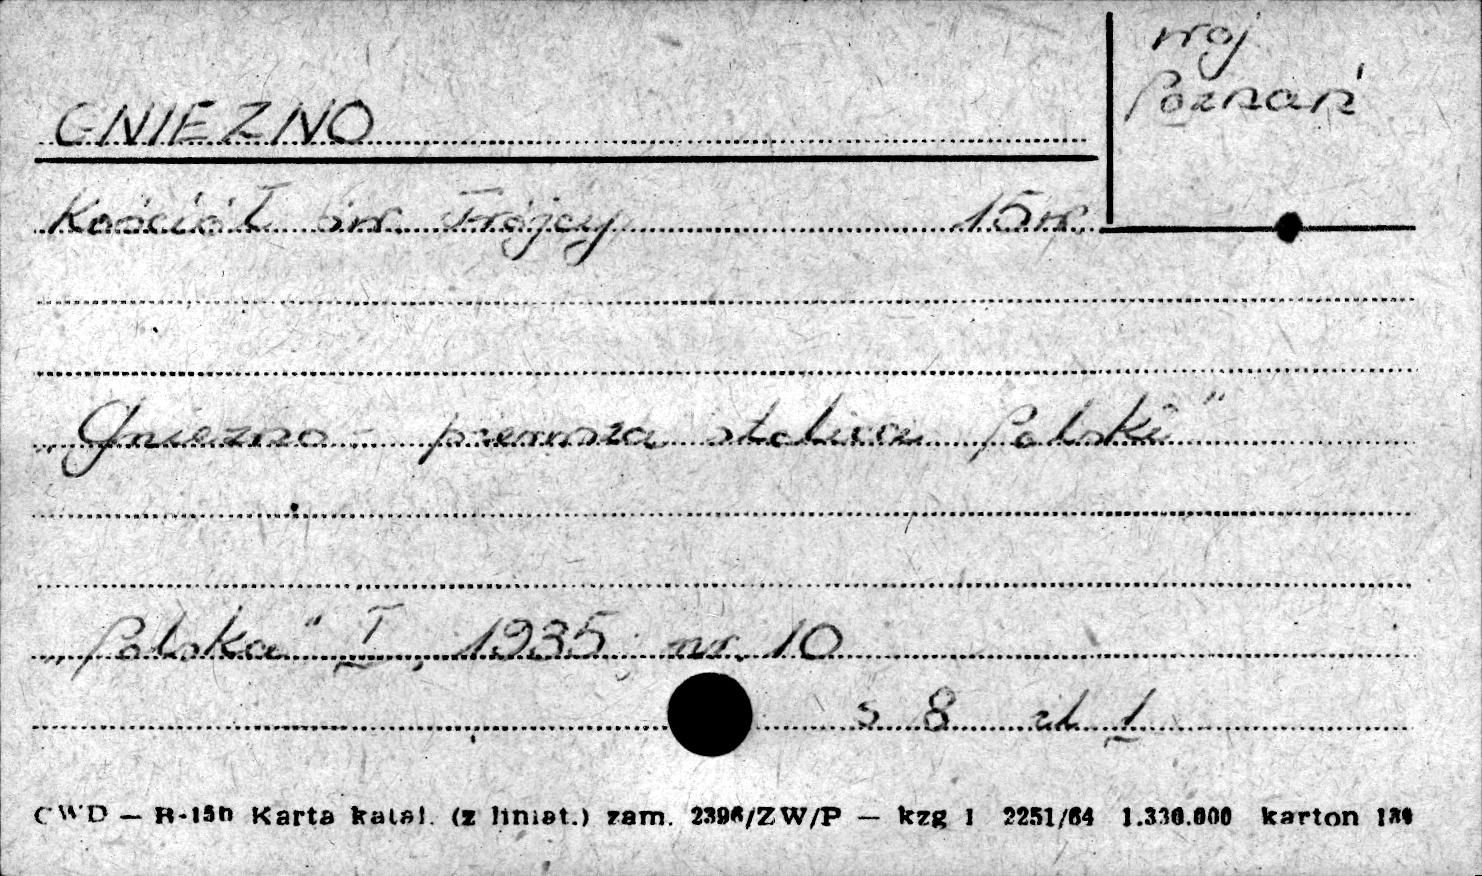 woj
Poznań
GNIEZNO
Kościół św. Trójcy 15w.
„Gniezno - pierwsza stolica Polski"
„Polska" I, 1935 nr. 10
s 8 il 1
CWD — R-15b Karta katal. (z liniat.) zam. 2396/ZW/P — kzg 1 2251/64 1.330.000 karton